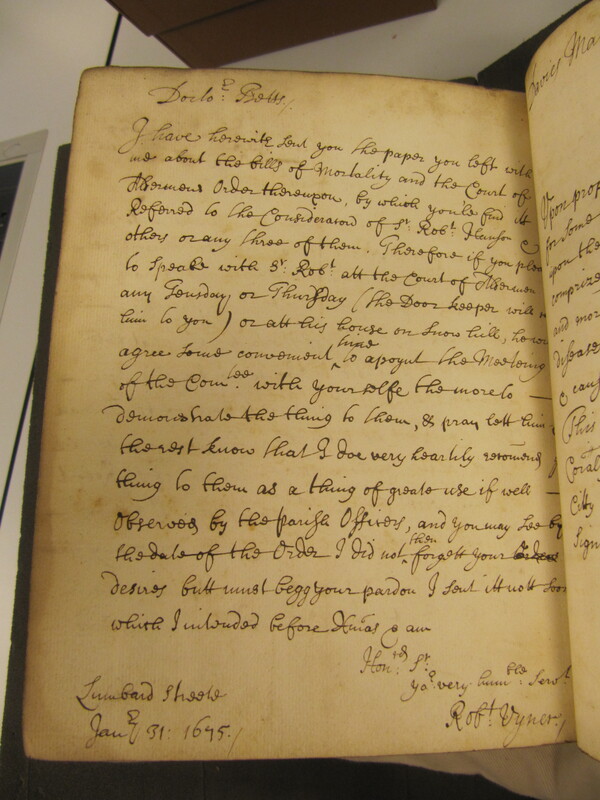 Docto:r Betts/.
I have herewith sent you the paper you left with
me about the bills of Mortality and the Court of
Aldermens Order thereupon, by which youle find itt
Referred to the Consideration of Sr. Robt. Hanson &
others or any three of them. Therefore if you plea
to speake with Sr. Robt. att the Court of Aldermen
any Tuesday or Thursday (the Door keeper will
him to you) or att his house on Snow hill, he
agree some convenient time to apoynt the Meeteing
of the Comtee. with yourselfe the more to
demonstrate the thing to them, & pray lett him
the rest know that I doe very heartily recomend
thing to them as a thing of greate use if well
Observed by the parish Officers, and you may see by
the date of the Order I did not then forgett your
desires butt must begg your pardon I sent itt nott soo
which I intended before Xmas & am
Honrd. Sr.
yor. very humble: Servt.
Robt. Vyner./
Lumbard Streete
Jany 31: 1675./
Davies Ma
Upon prop
for some
upon the
comprize
and mor
disease
& caus
This
Coral
Citty
Sign